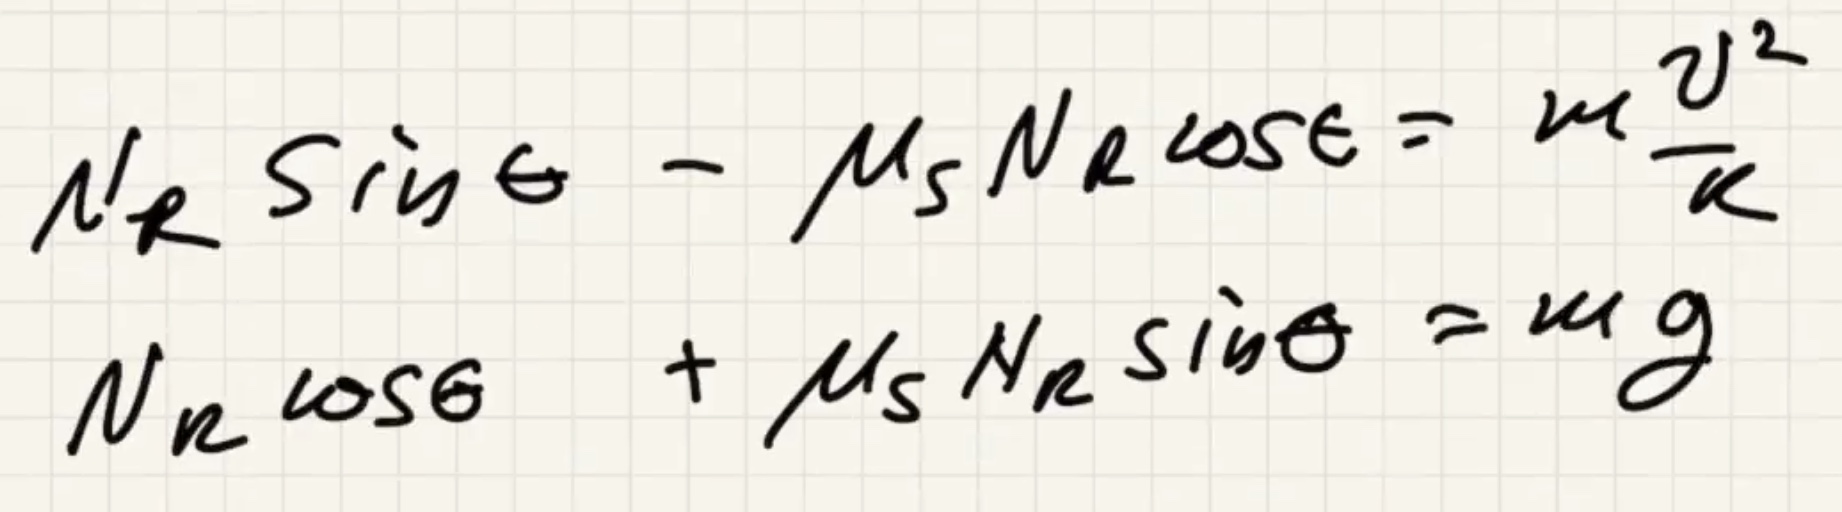 N_R sinθ − μ_S N_R cosθ = m v²/R
N_R cosθ + μ_S N_R sinθ = mg